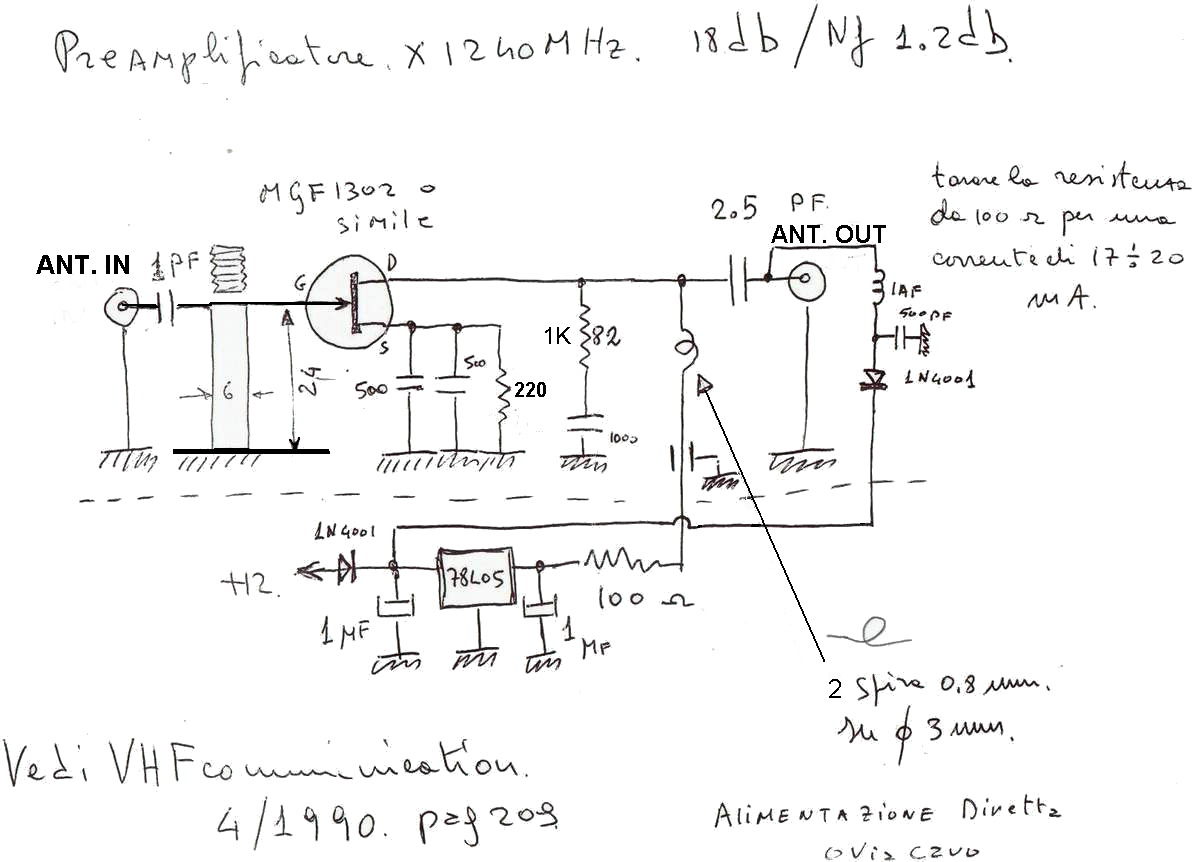 PreAmplificatore x 1240 MHz. 18 db / Nf 1.2 db.
MGF1302 o
simile
2.5 PF.
tarare la resistenza
da 100 Ω per una
corrente di 17 ÷ 20
mA.
ANT. IN
1PF
ANT. OUT
G
D
S
1AF
500 PF
1N4001
6
24
500
500
220
1K
82
1000
1N4001
+12.
78L05
100 Ω
1 MF
1
MF
2 spire 0.8 mm.
su ϕ 3 mm.
Vedi VHF communication.
4/1990. pag 209
Alimentazione Diretta
o via cavo